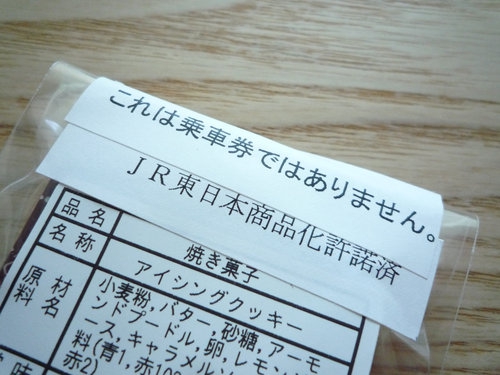 これは乗車券ではありません。
JR東日本商品化許諾済
品名 焼き菓子
名称 アイシングクッキー
原材料名 小麦粉,バター,砂糖,アーモ
ンドプードル,卵,レモン
ース,キャラメル
料(青1,赤10
赤2)
味